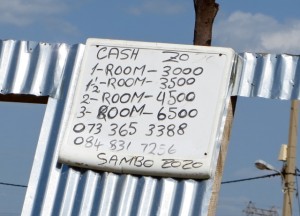 CASH ZO
1-ROOM-3000
1½-ROOM-3500
2-ROOM-4500
3-ROOM-6500
073 365 3388
084 831 7256
SAMBO ZOZO